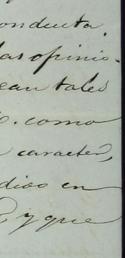 conducta.
las opinio-
ean tales
como
caracter,
dios en
y que